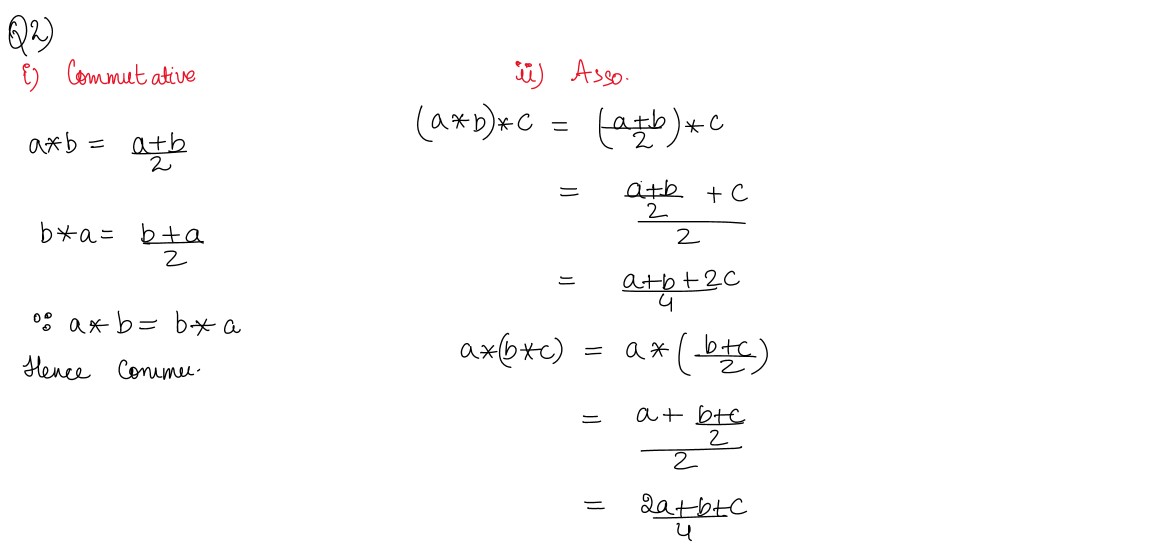 Q2)
i) Commutative
a*b = (a+b)/2
b*a = (b+a)/2
∵ a*b = b*a
Hence Commu.
ii) Asso.
(a*b)*c = ((a+b)/2)*c
= ((a+b)/2 + c)/2
= (a+b+2c)/4
a*(b*c) = a*((b+c)/2)
= (a + (b+c)/2)/2
= (2a+b+c)/4